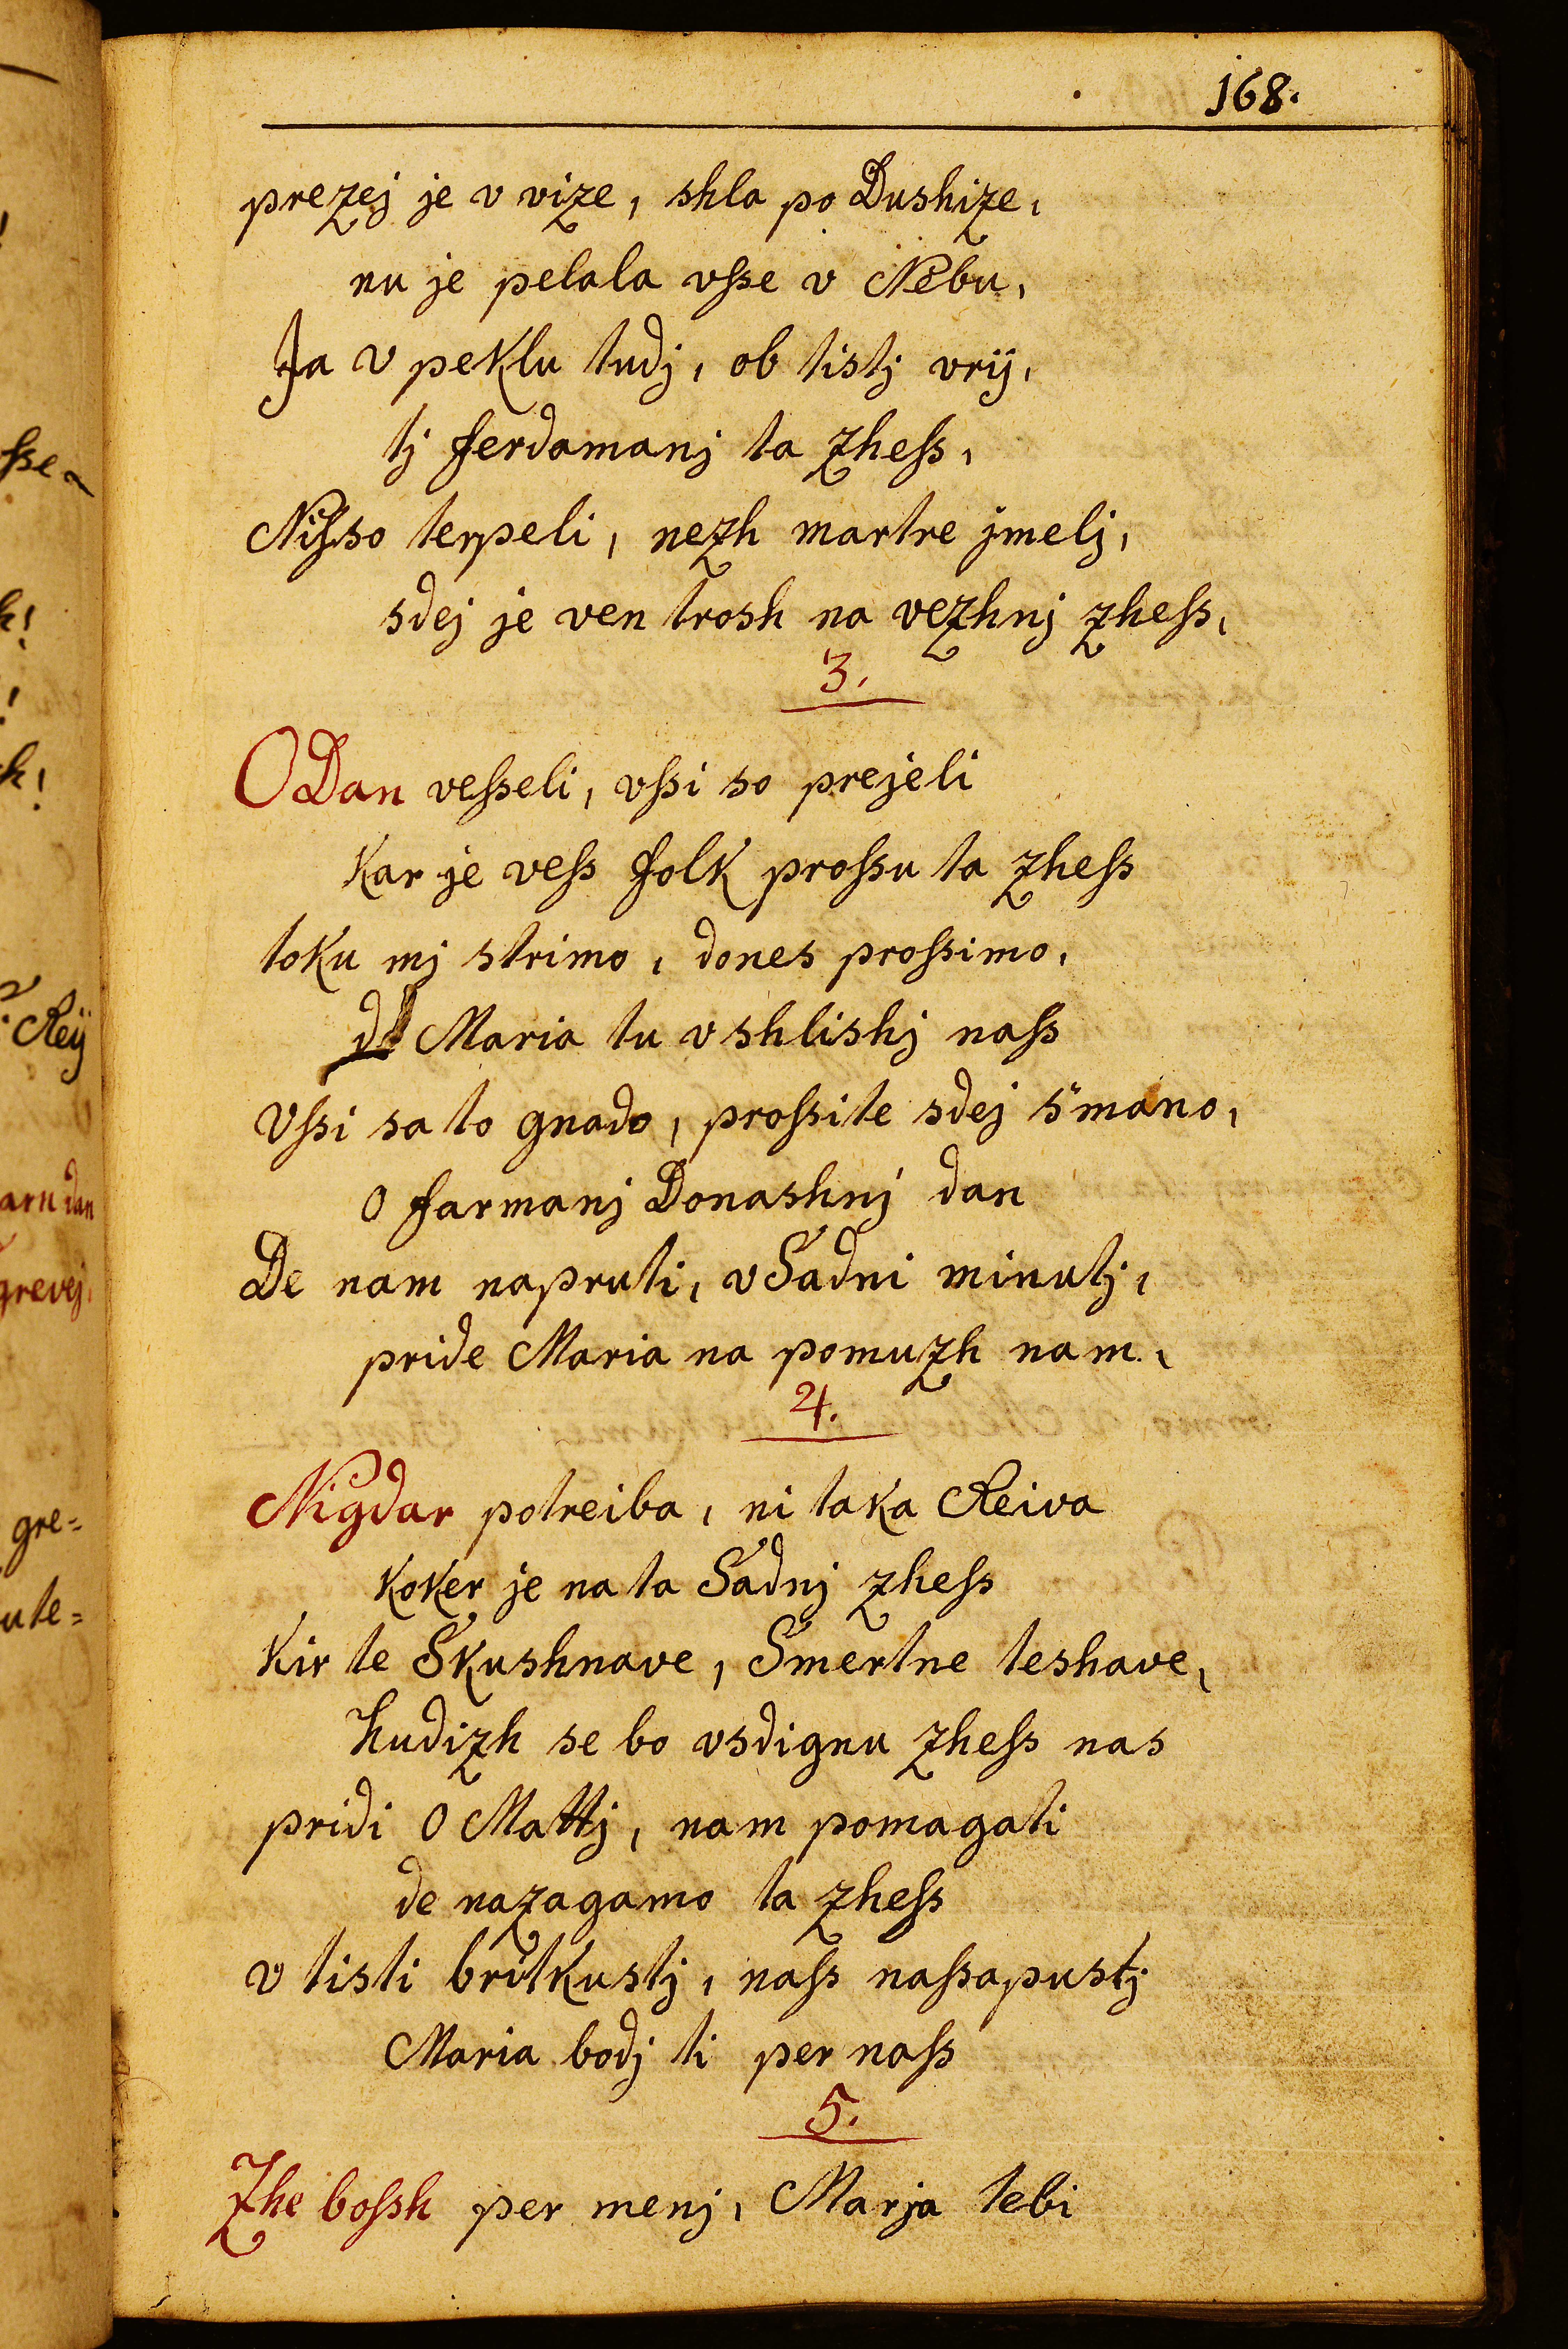 168.
prezej je v vize, shla po Dushize,
nu je pelala vſse v Nebu,
Ja v peklu tudj, ob tistj vrij,
tj ferdamanj ta zheſs,
Niſsso terpeli, nezh martre jmelj,
sdej je ven trosh na vezhnj zheſs,
3.
O Dan veſseli, vſsi so prejeli
Kar je veſs folk proſsu ta zheſs
toku mj strimo, dones proſsimo,
Maria tu vshlishj naſs
Vſsi sa to gnado, proſsite sdej s'mano,
O farmanj Donashnj dan
De nam napruti, v Sadni minutj,
pride Maria na pomuzh nam.
4.
Nigdar potreiba, ni taka Reiva
koker je na ta Sadnj zheſs
Kir te Skushnave, Smertne teshave,
hudizh se bo vsdignu zheſs nas
pridi O Mattj, nam pomagati
de nazagamo ta zheſs
v tisti britkustj, naſs naſsapustj
Maria bodj ti per naſs
5.
Zhe boſsh per menj, Marja tebi
ſse
h!
!
h!
Reij
arn dan
grevej,
gre=
ute=